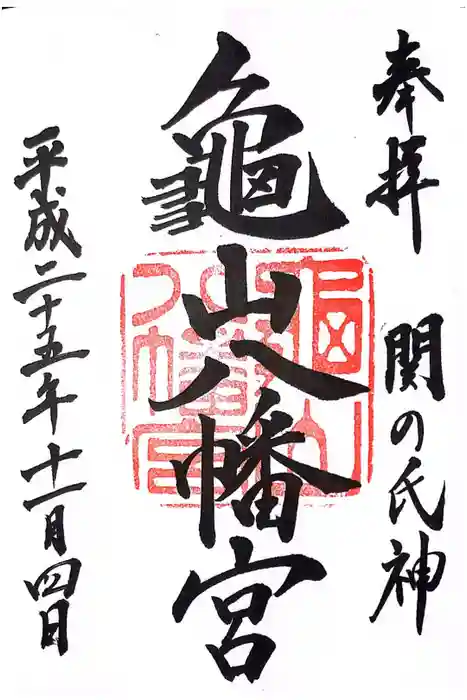 奉拝 関の氏神
龜山八幡宮
平成二十五年十一月四日